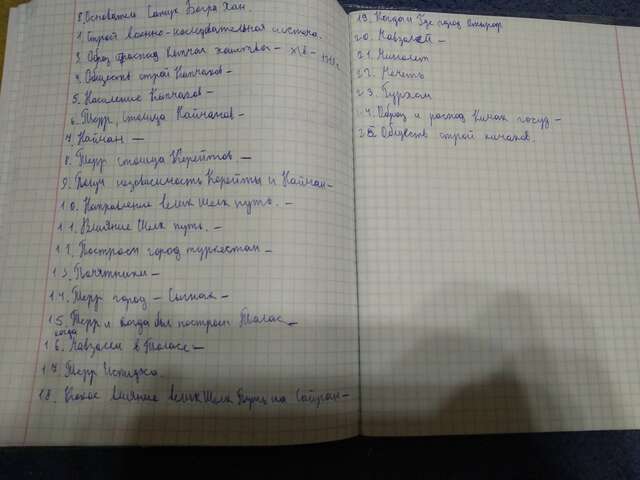 8. Основатель Сатук Богра Хан.
1. Строй военно-последовательная система.
3. Образ распад Кыпчак ханства - XIв - 1219г
4. Обществ строй Кыпчаков -
5. Население Кыпчаков -
6. Терр, столица Найманов -
7. Найман -
8. Терр столица Керейтов -
9. Получ независимость Керейты и Найман -
10. Направление велик шелк путь. -
11. Влияние Шелк путь. -
12. Построен город туркестан -
13. Памятники -
14. Терр город - Сыгнак -
15. Терр и когда был построен Талас -
когда
16. Мавзолеи в Таласе -
17. Терр Испиджа
18. Какое влияние велик Шелк Путь на Сайран -
19. Когда и Где город Отырар
20. Мавзолей -
21. Минолет
22. Мечеть
23. Гурхан
24. Образ и распад Кимак госуд -
25. Обществ строй кимаков.